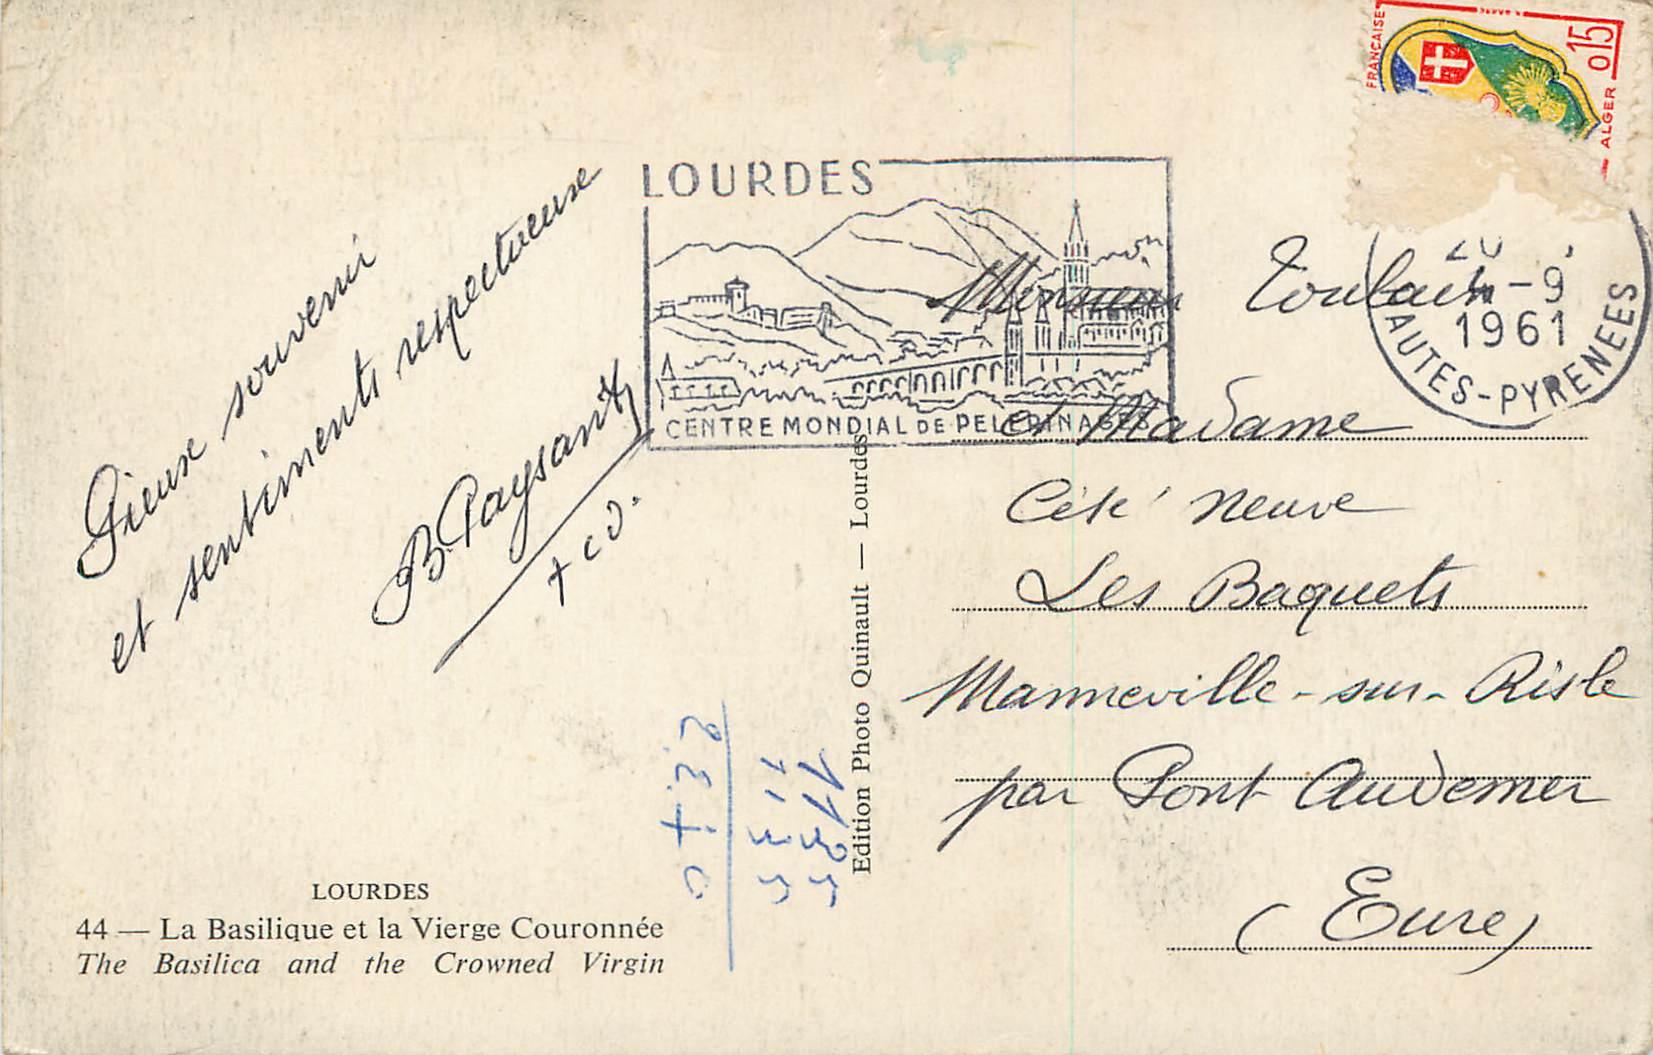 FRANÇAISE
0,15
ALGER
LOURDES
CENTRE MONDIAL DE PELERINAGES
-9
1961
HAUTES-PYRENEES
Pieux souvenir
et sentiments respectueux
B Paysant
Monsieur
et Madame
Cité Neuve
Les Baquets
Manneville-sur-Risle
par Pont Audemer
(Eure)
Edition Photo Quinault — Lourdes
LOURDES
44 — La Basilique et la Vierge Couronnée
The Basilica and the Crowned Virgin